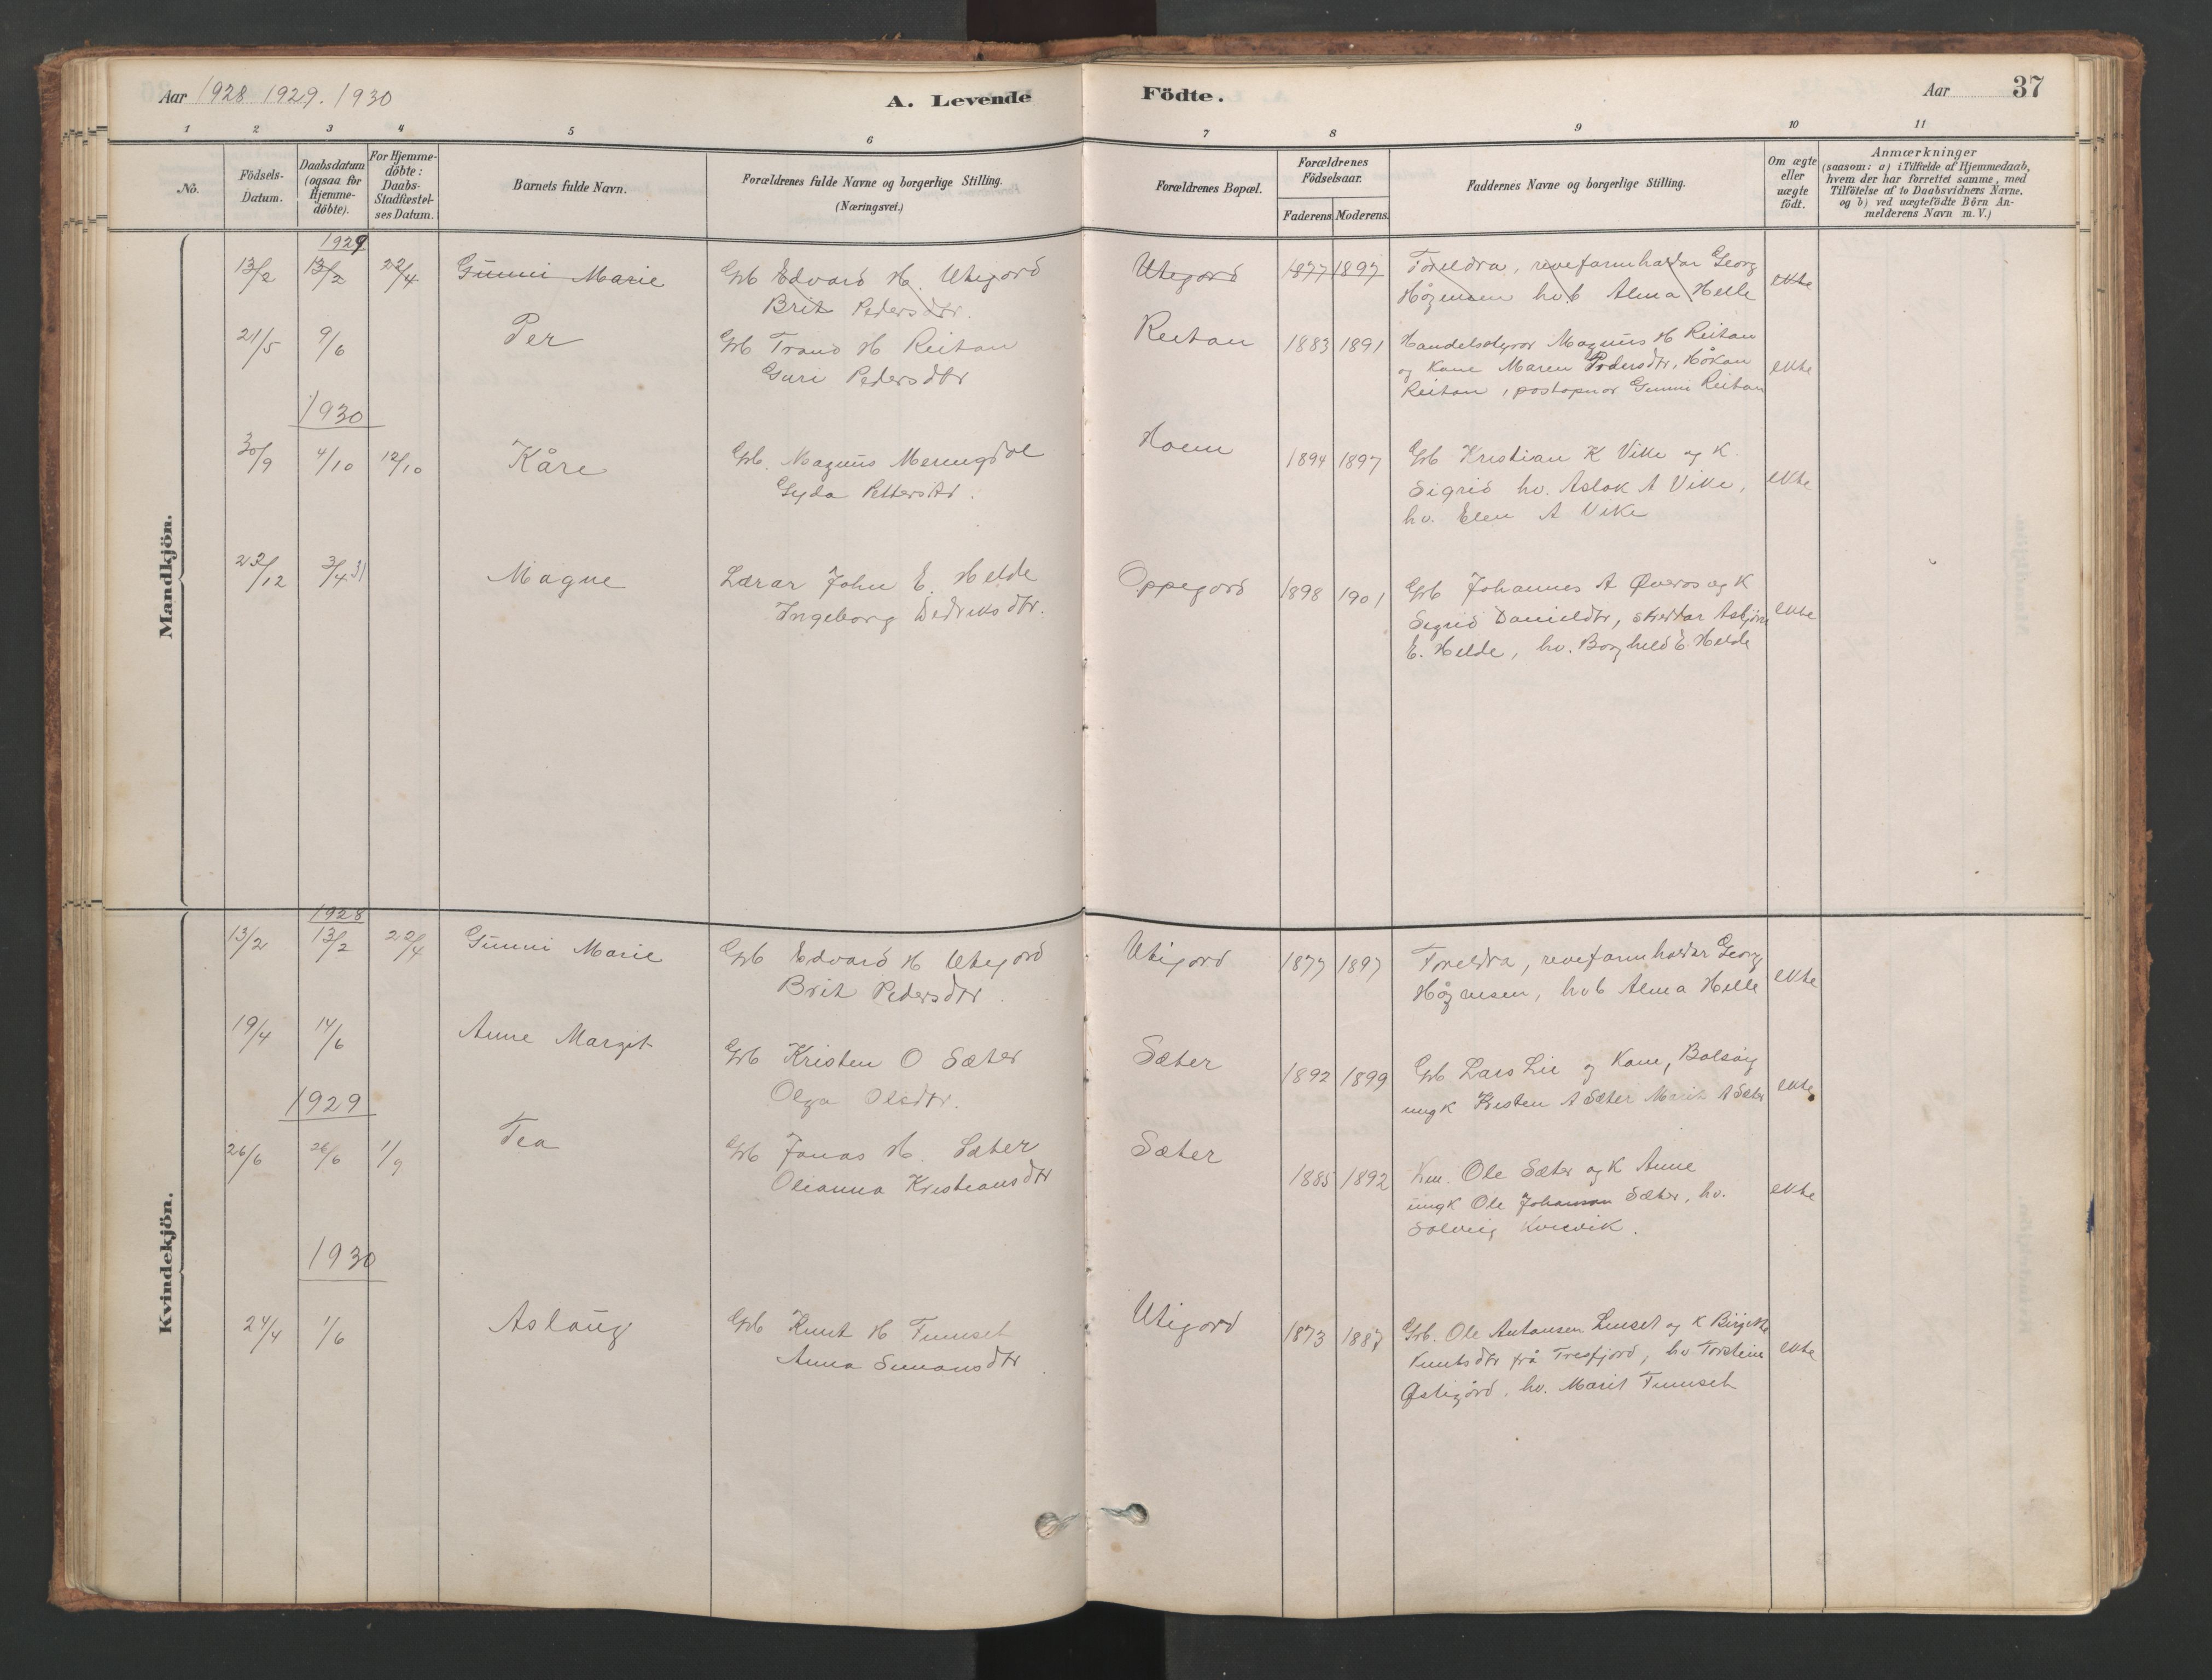 Aar 1928 1929. 1930
A. Levende Födte.
Aar 37
1 2 3 4 5 6 7 8 9 10 11
No.
Födsels-
Datum.
Daabsdatum
(ogsaa for
Hjemme-
döbte).
For Hjemme-
döbte:
Daabs-
Stadfæstel-
ses Datum.
Barnets fulde Navn.
Forældrenes fulde Navne og borgerlige Stilling.
(Næringsvei.)
Forældrenes Bopæl.
Forældrenes
Födselsaar.
Faderens Moderens.
Faddernes Navne og borgerlige Stilling.
Om ægte
eller
uægte
födt.
Anmærkninger
(saasom: a) i Tilfælde af Hjemmedaab,
hvem der har forrettet samme, med
Tilföielse af to Daabsvidners Navne.
og b) ved uægtefödte Börn An-
melderens Navn m. V.)
Mandkjön.
1929
13/2 13/2 22/4 Gunni Marie Grb Edvard H. Utigord Utegord 1877 1897 Foreldra, revefarmhaldar Georg ekte
Brit Pedersdtr. Högnesen hvb Alma Helle
21/5 9/6 Per Grb Trond H Reitan Reitan 1883 1891 Handelsstyrar Magnus H Reitan
Guri Pedersdtr og Kone Maren Pedersdtr, Håkon ekte
Reitan, postopnar Gunni Reitan
1930
30/9 4/10 12/10 Kåre Grb. Magnus Meringdal Hoem 1894 1897 Grb Kristian K Vike og K.
Gyda Pettersdtr. Sigrid hv. Aslak A Vike, ekte
hv. Elen A Vike
22/12 3/4 31 Magne Lærar John E. Helde Oppegord 1898 1901 Grb Johannes A Överos og K
Ingeborg Dedriksdtr. Sigrid Danieldtr, skreddar Asbjörn ekte
E. Helde, hv. Borghild E. Helde
Kvindekjön.
1928
13/2 13/2 22/4 Gunni Marie Grb Edvard H Utegord Utigord 1877 1897 Foreldra, revefarmhaldar Georg
Brit Pedersdtr. Högnesen, hvb Alma Helle ekte
19/4 14/6 Anne Margit Grb Kristen O Sæter Sæter 1892 1899 Grb Lars Lie og Kone, Bolsöy
Olga Olsdtr. ungk Kristen A Sæter Marit A Sæter ekte
1929
26/6 26/6 1/9 Tea Grb Jonas H. Sæter Sæter 1885 1892 Km. Ole Sæter og K Anne
Olianna Kristiansdtr ungk Ole Johanson Sæter, hv. ekte
Solveig Kvisvik.
1930
24/4 1/6 Aslaug Grb Knut H Tumset Utigord 1873 1887 Grb. Ole Antonsen Lenset og K Birgitte
Anna Simonsdtr Knutsdtr frå Tresfjord, hv Torstein ekte
Östigård, hv. Marit Tumset